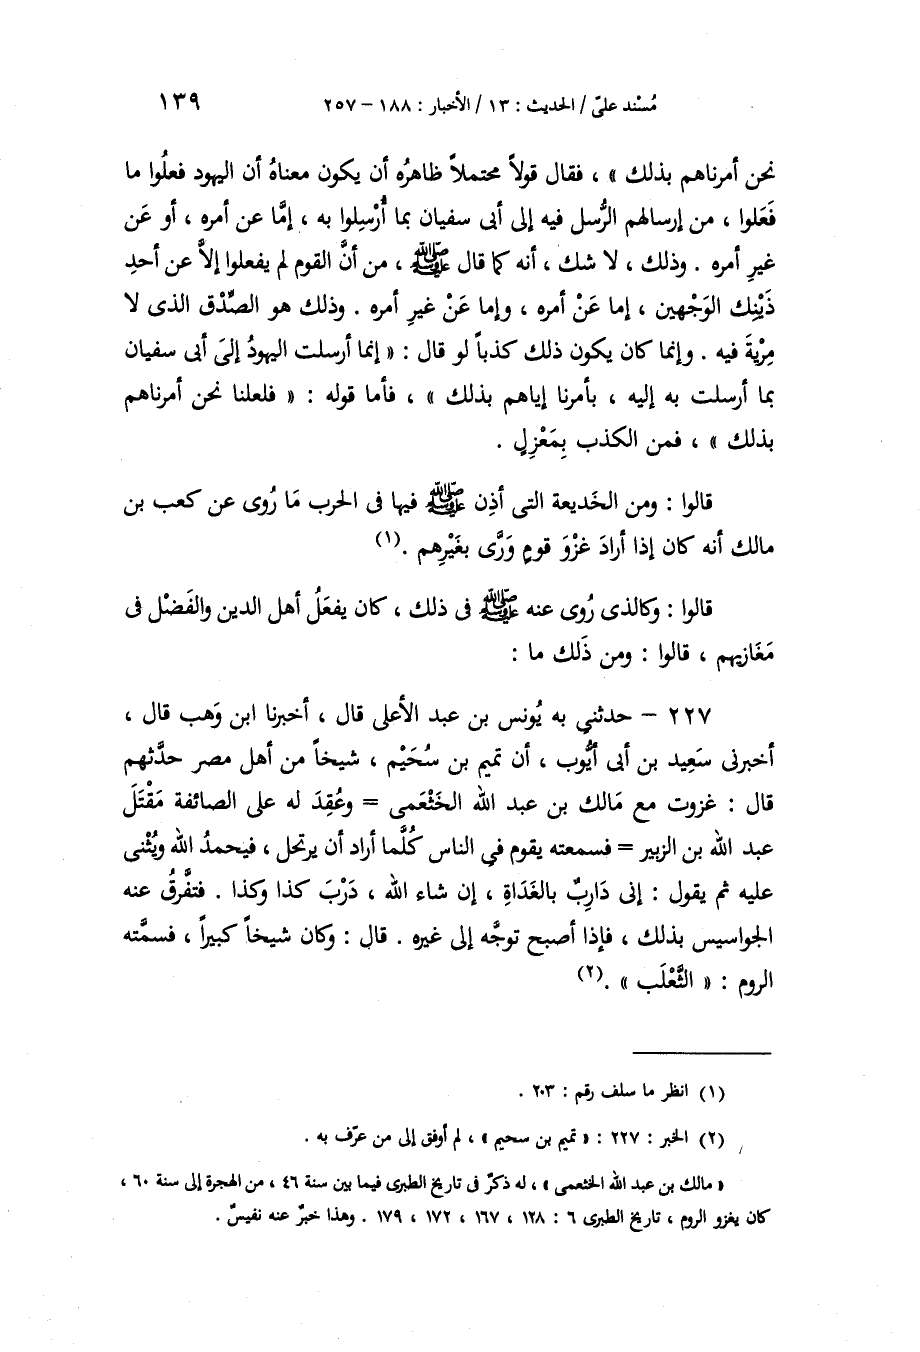 مُسْند علىّ / الحديث : ١٣ / الأخبار : ١٨٨ – ٢٥٧ ١٣٩
نحن أمرناهم بذلك » ، فقال قولاً محتملاً ظاهرُه أن يكون معناهُ أن اليهود فعلُوا ما
فَعَلوا ، من إرسالهم الرُّسل فيه إلى أبى سفيان بما أُرْسِلوا به ، إمَّا عن أمره ، أو عَن
غيرِ أمره . وذلك ، لا شك ، أنه كما قال ﷺ ، من أنَّ القوم لم يفعلوا إلاَّ عن أحدِ
ذَيْنِك الوَجْهين ، إما عَنْ أمره ، وإما عَنْ غيرِ أمره . وذلك هو الصِّدْق الذى لا
مِرْيةَ فيه . وإنما كان يكون ذلك كذباً لو قال : « إنما أرسلت اليهودُ إلىَ أبى سفيان
بما أرسلت به إليه ، بأمرنا إياهم بذلك » ، فأما قوله : « فلعلنا نحن أمرناهم
بذلك » ، فمن الكذب بِمَعْزِلٍ .
قالوا : ومن الخَديعة التى أذِن ﷺ فيها فى الحرب مَا رُوى عن كعب بن
مالك أنه كان إذا أرادَ غزْوَ قومٍ وَرَّى بغَيْرِهم .(١)
قالوا : وكالذى رُوى عنه ﷺ فى ذلك ، كان يفعَلُ أهل الدين والفَضْل فى
مَغَازيهم ، قالوا : ومن ذَلك ما :
٢٢٧ – حدثني به يُونس بن عبد الأعلى قال ، أخبرنا ابن وَهب قال ،
أخبرنى سَعِيد بن أبى أيُّوب ، أن تميم بن سُحَيْم ، شيخاً من أهل مصر حدَّثهم
قال : غزوت مع مَالك بن عبد الله الخَثْعَمى = وعُقِدَ له على الصائفة مَقْتَلَ
عبد الله بن الزبير = فسمعته يقوم في الناس كُلَّما أراد أن يرتحل ، فيحمدُ الله ويُثْنى
عليه ثم يقول : إنى دَارِبٌ بالغَدَاةِ ، إن شاء الله ، دَرْبَ كذا وكذا . فتفَّرقُ عنه
الجواسيس بذلك ، فإذا أصبح توجَّه إلى غيره . قال : وكان شيخاً كبيراً ، فسمَّته
الروم : « الثَّعْلَب » .(٢)
(١) انظر ما سلف رقم : ٢٠٣ .
(٢) الخبر : ٢٢٧ : « تميم بن سحيم » ، لم أوفق إلى من عرَّف به .
« مالك بن عبد الله الخثعمى » ، له ذكرٌ فى تاريخ الطبرى فيما بين سنة ٤٦ ، من الهجرة إلى سنة ٦٠ ،
كان يغزو الروم ، تاريخ الطبرى ٦ : ١٢٨ ، ١٦٧ ، ١٧٢ ، ١٧٩ . وهذا خبرٌ عنه نفيسٌ .